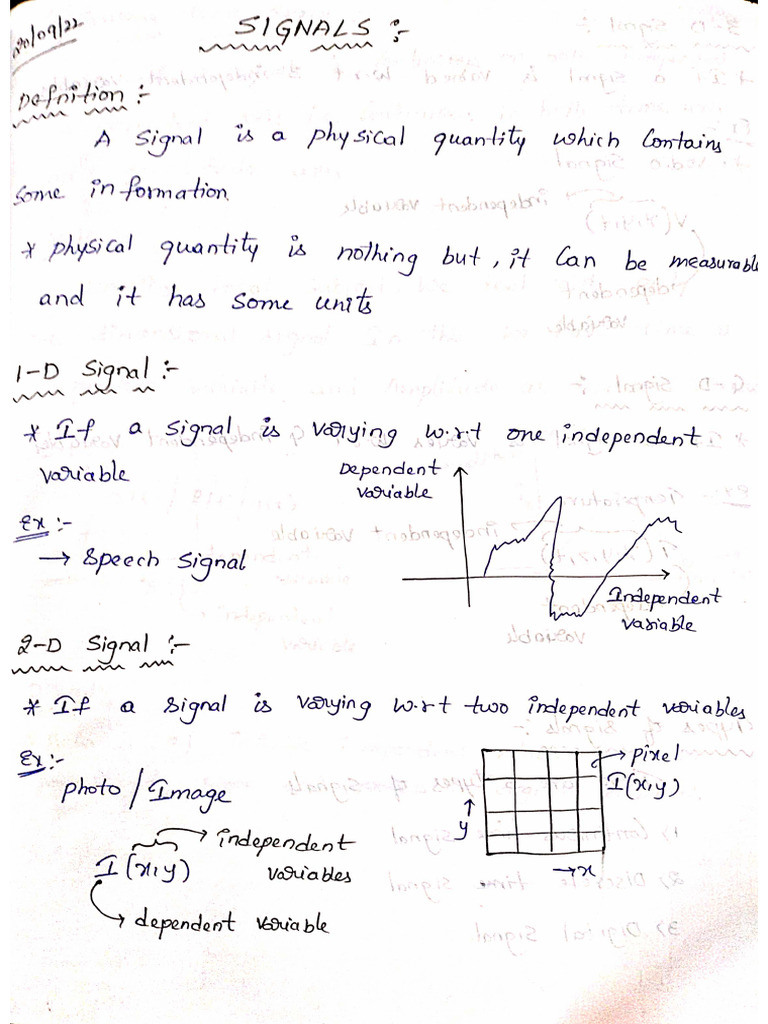 20/09/22
SIGNALS :-
Definition :-
A signal is a physical quantity which contains
some information
* physical quantity is nothing but, it can be measurable
and it has some units
1-D Signal :-
* If a signal is varying w.r.t one independent
variable
Dependent
variable
Ex :-
→ Speech signal
Independent
variable
2-D Signal :-
* If a signal is varying w.r.t two independent variables
Ex :-
photo / Image
→ pixel
I(x,y)
↑
y
→ x
→ independent
variables
I(x,y)
→ dependent variable